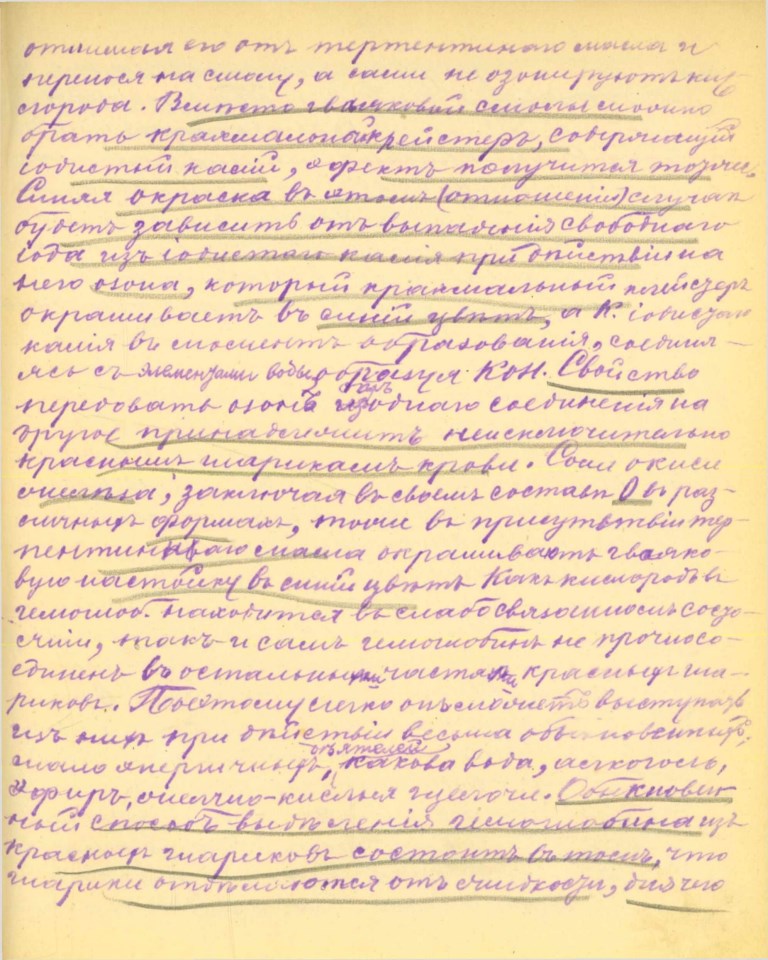 отнимая его отъ терпентиннаго масла и
перенося на смолу, а сами не озонируютъ кис-
лорода. Вмѣсто гваяковой смолы можно
брать крахмальный клейстеръ, содержащій
іодистый калій, эфектъ получится тотже.
Синяя окраска въ этомъ (отношеніи) случаѣ
будетъ зависить отъ выпаденія свободнаго
іода изъ іодистаго калія при дѣйствіи на
него озона, который крахмальный клейстеръ
окрашиваетъ въ синій цвѣтъ, а К. іодистаго
калія въ моментъ образованія, соединя-
ясь съ элементами воды образуя КОН. Свойство
передовать озонъ изъ однаго соединенія на
другое принадлежитъ неисключительно
краснымъ шарикамъ крови. Соли окиси
желѣза, заключая въ своемъ составѣ О въ раз-
личныхъ формахъ, тоже въ присутствіи тер-
пентиннаго масла окрашиваютъ гваяко-
вую настойку въ синій цвѣтъ Какъ кислородъ въ
гемоглоб. находится въ слабосвязанномъ состо-
яніи, такъ и самъ гемоглобинъ не прочносо-
единенъ въ остальными частями красныхъ ша-
риковъ. Поэтому легко онъ можетъ выступать
изъ нихъ при дѣйствіи весьма обыкновенныхъ,
мало энергичныхъ дѣятелей, какова вода, алкоголь,
эфиръ, желчно-кислыя щелочи. Обыкновен-
ный способъ выдѣленія гемоглобина изъ
красныхъ шариковъ состоитъ въ томъ, что
шарики отдѣляются отъ жидкости,